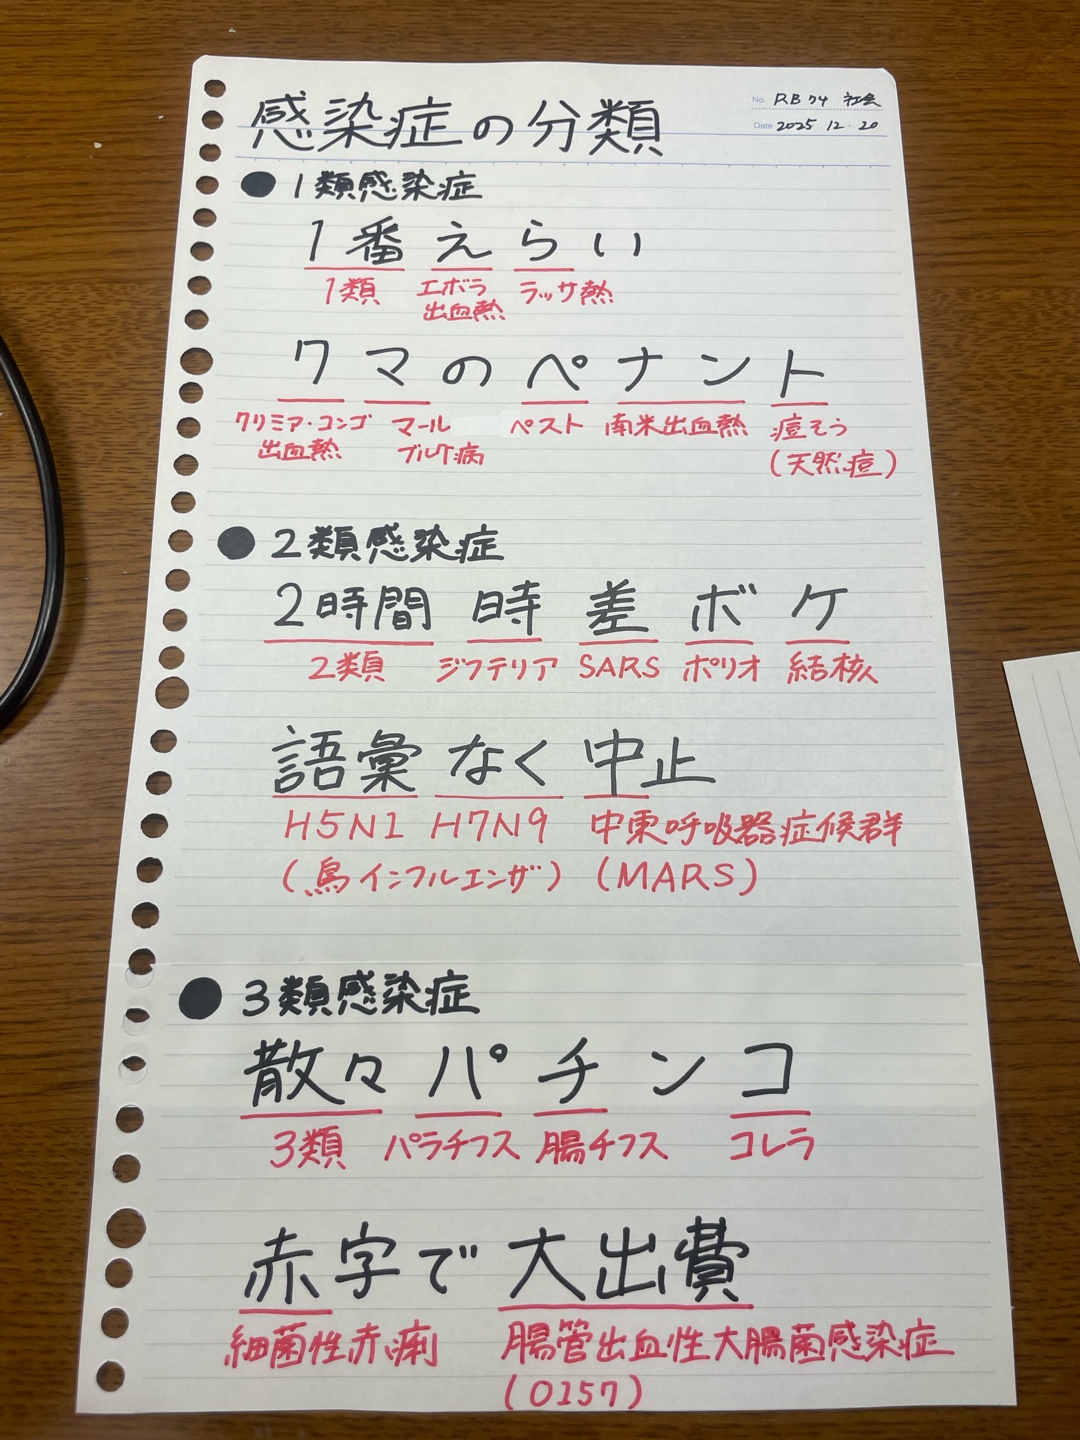 感染症の分類
No. RB 74 社会
Date 2025 12・20
● 1類感染症
1番えらい
1類 エボラ出血熱 ラッサ熱
クマのペナント
クリミア・コンゴ出血熱 マールブルグ病 ペスト 南米出血熱 痘そう(天然痘)
● 2類感染症
2時間 時差ボケ
2類 ジフテリア SARS ポリオ 結核
語彙なく中止
H5N1 H7N9 中東呼吸器症候群
(鳥インフルエンザ) (MARS)
● 3類感染症
散々パチンコ
3類 パラチフス 腸チフス コレラ
赤字で大出費
細菌性赤痢 腸管出血性大腸菌感染症
(O157)